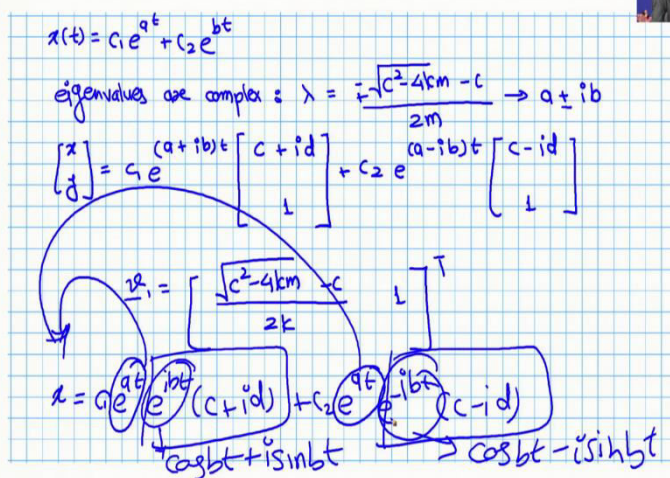 x(t) = c₁e^{at} + c₂e^{bt}
eigenvalues are complex : λ = \frac{∓\sqrt{c²-4km} - c}{2m} → a ± ib
\begin{bmatrix} x \\ y \end{bmatrix} = c₁e^{(a+ib)t} \begin{bmatrix} c+id \\ 1 \end{bmatrix} + c₂e^{(a-ib)t} \begin{bmatrix} c-id \\ 1 \end{bmatrix}
v₁ = \begin{bmatrix} \frac{\sqrt{c²-4km} - c}{2k} & 1 \end{bmatrix}^T
x = c₁e^{at} e^{ibt} (c+id) + c₂e^{at} e^{-ibt} (c-id)
cosbt + isinbt cosbt - isinbt